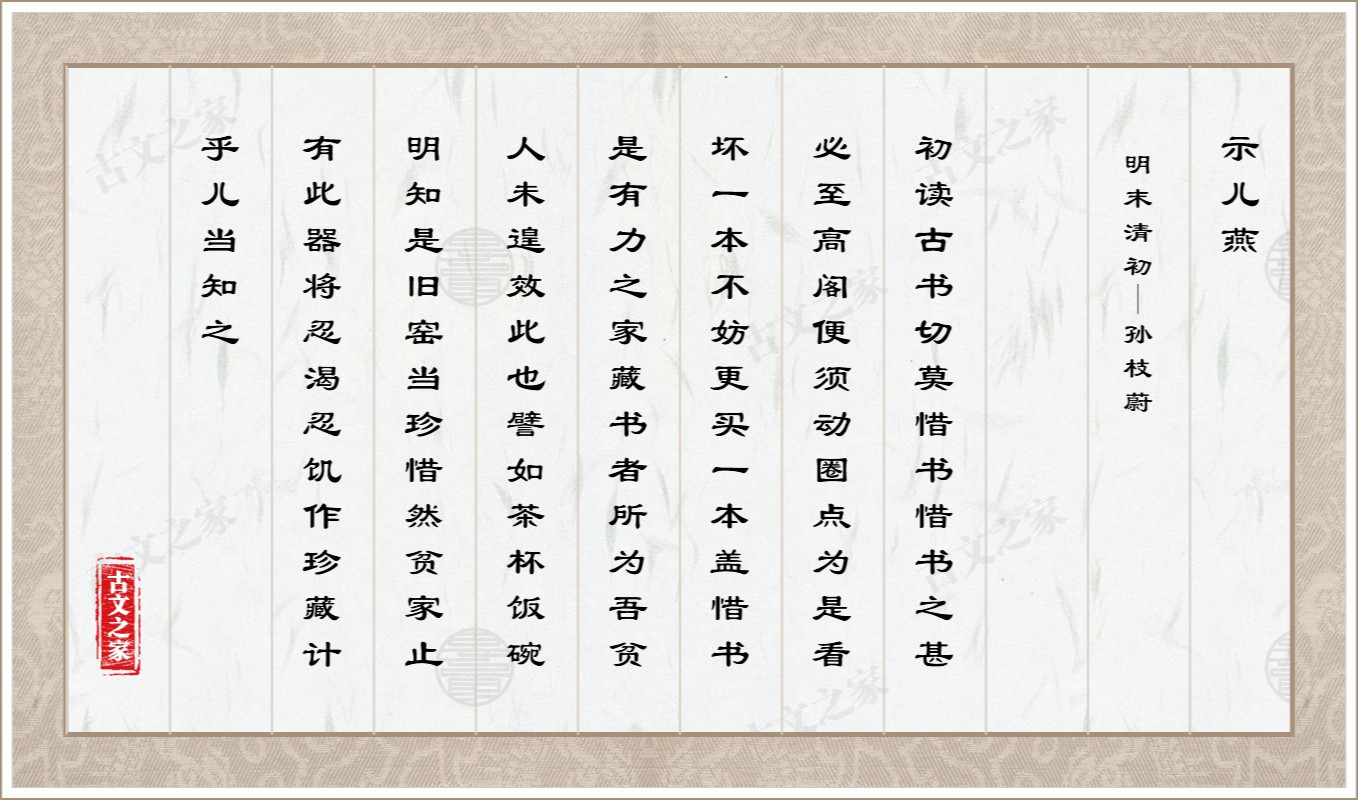 示儿燕
明末清初——孙枝蔚
初读古书切莫惜书惜书之甚
必至高阁便须动圈点为是看
坏一本不妨更买一本盖惜书
是有力之家藏书者所为吾贫
人未遑效此也譬如茶杯饭碗
明知是旧窑当珍惜然贫家止
有此器将忍渴忍饥作珍藏计
乎儿当知之
古文之家
古文之家
古文之家
古文之家
古文之家
古文之家
古文之家